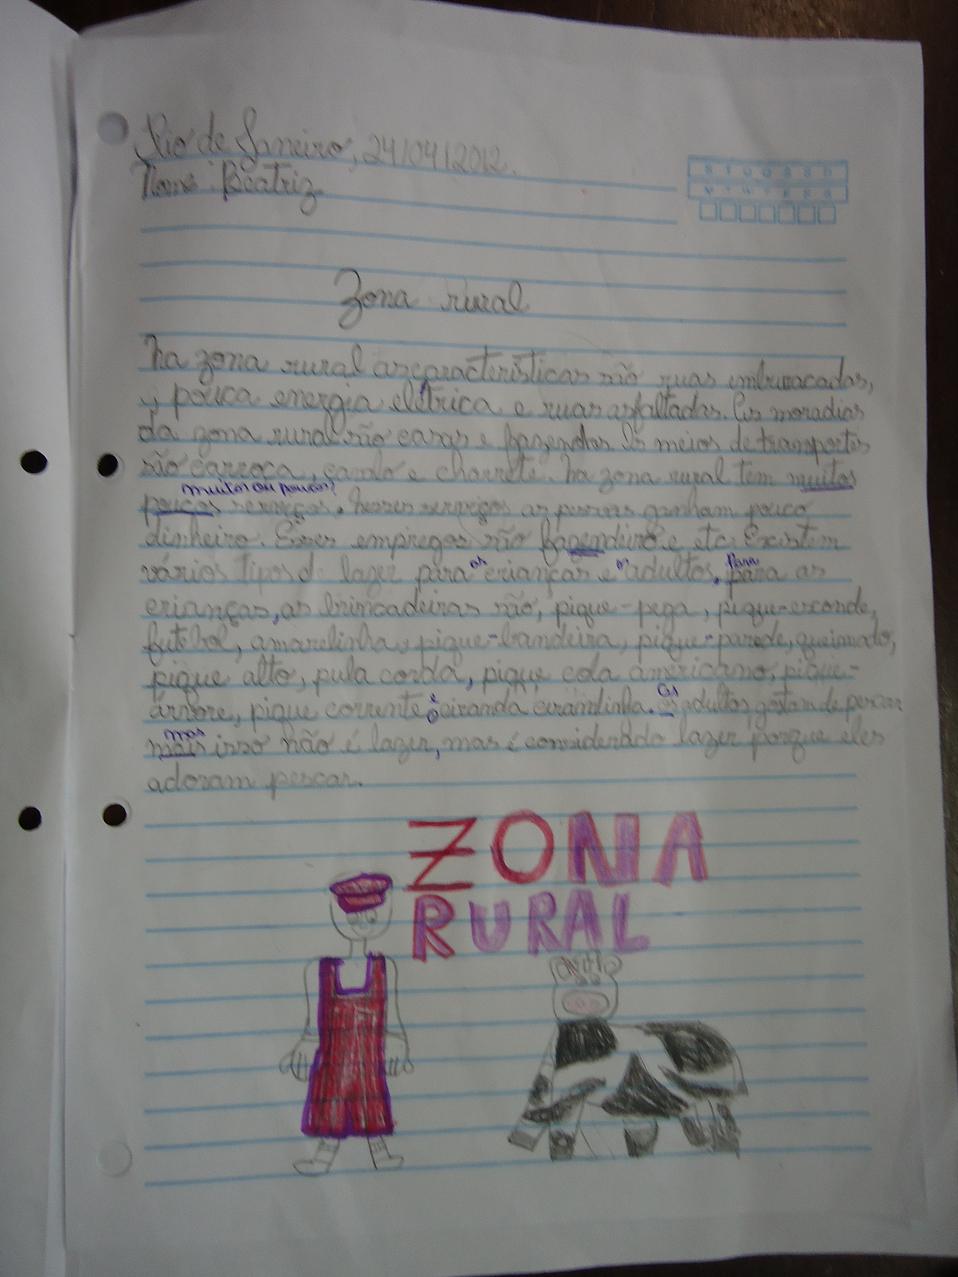 Rio de Janeiro, 24/04/2012.
Nome: Beatriz
Zona rural
Na zona rural as características são ruas emburacadas,
pouca energia elétrica e ruas asfaltadas. As moradias
da zona rural são casas e fazendas. Os meios de transportes
são carroça, cavalo e charrete. Na zona rural tem muitos
muitos ou poucos?
poucos serviços. Nesses serviços as pessoas ganham pouco
dinheiro. Esses empregos são fazendeiro e etc. Existem
vários tipos de lazer para as crianças e os adultos. Para para as
crianças, as brincadeiras são, pique-pega, pique-esconde,
futebol, amarelinha, pique-bandeira, pique-parede, queimado,
pique alto, pula corda, pique cola americano, pique-
árvore, pique corrente e ciranda cirandinha. Os os adultos gostam de pescar
mas
mais isso não é lazer, mas é considerado lazer porque eles
adoram pescar.
ZONA
RURAL